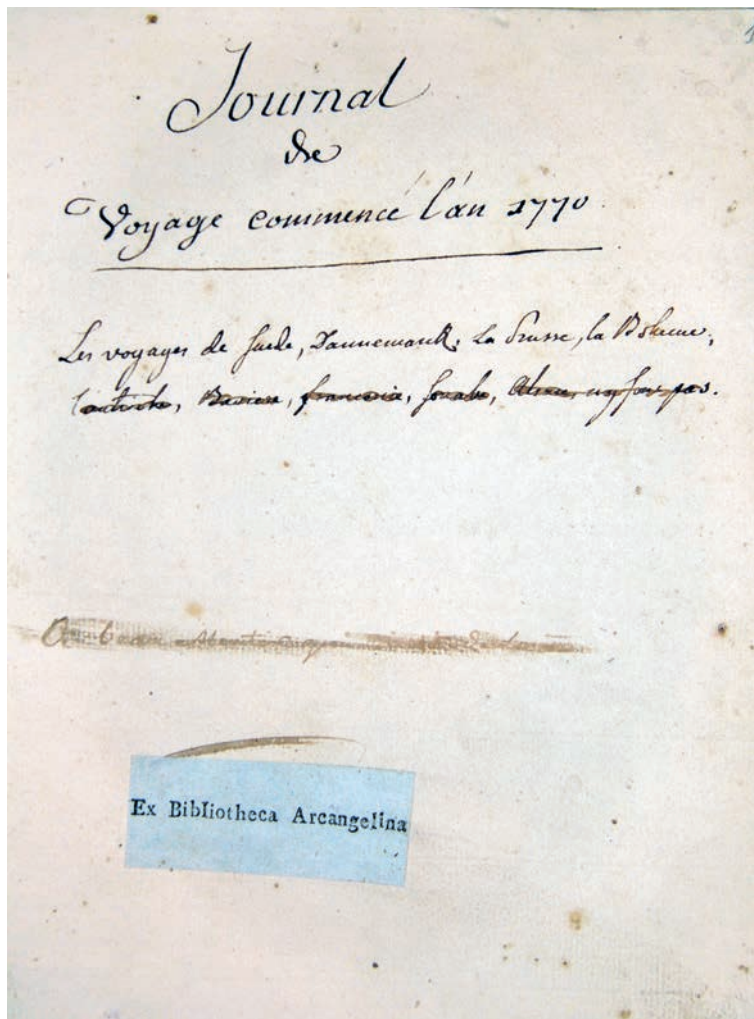 Journal
de
Voyage commencé l'an 1770
Les voyages de Suede, Dannemarck, La Prusse, la Boheme,
l'autriche, Baviere, franconie, Souabe, Alsace, n'y sont pas.
Ex Bibliotheca Arcangelina